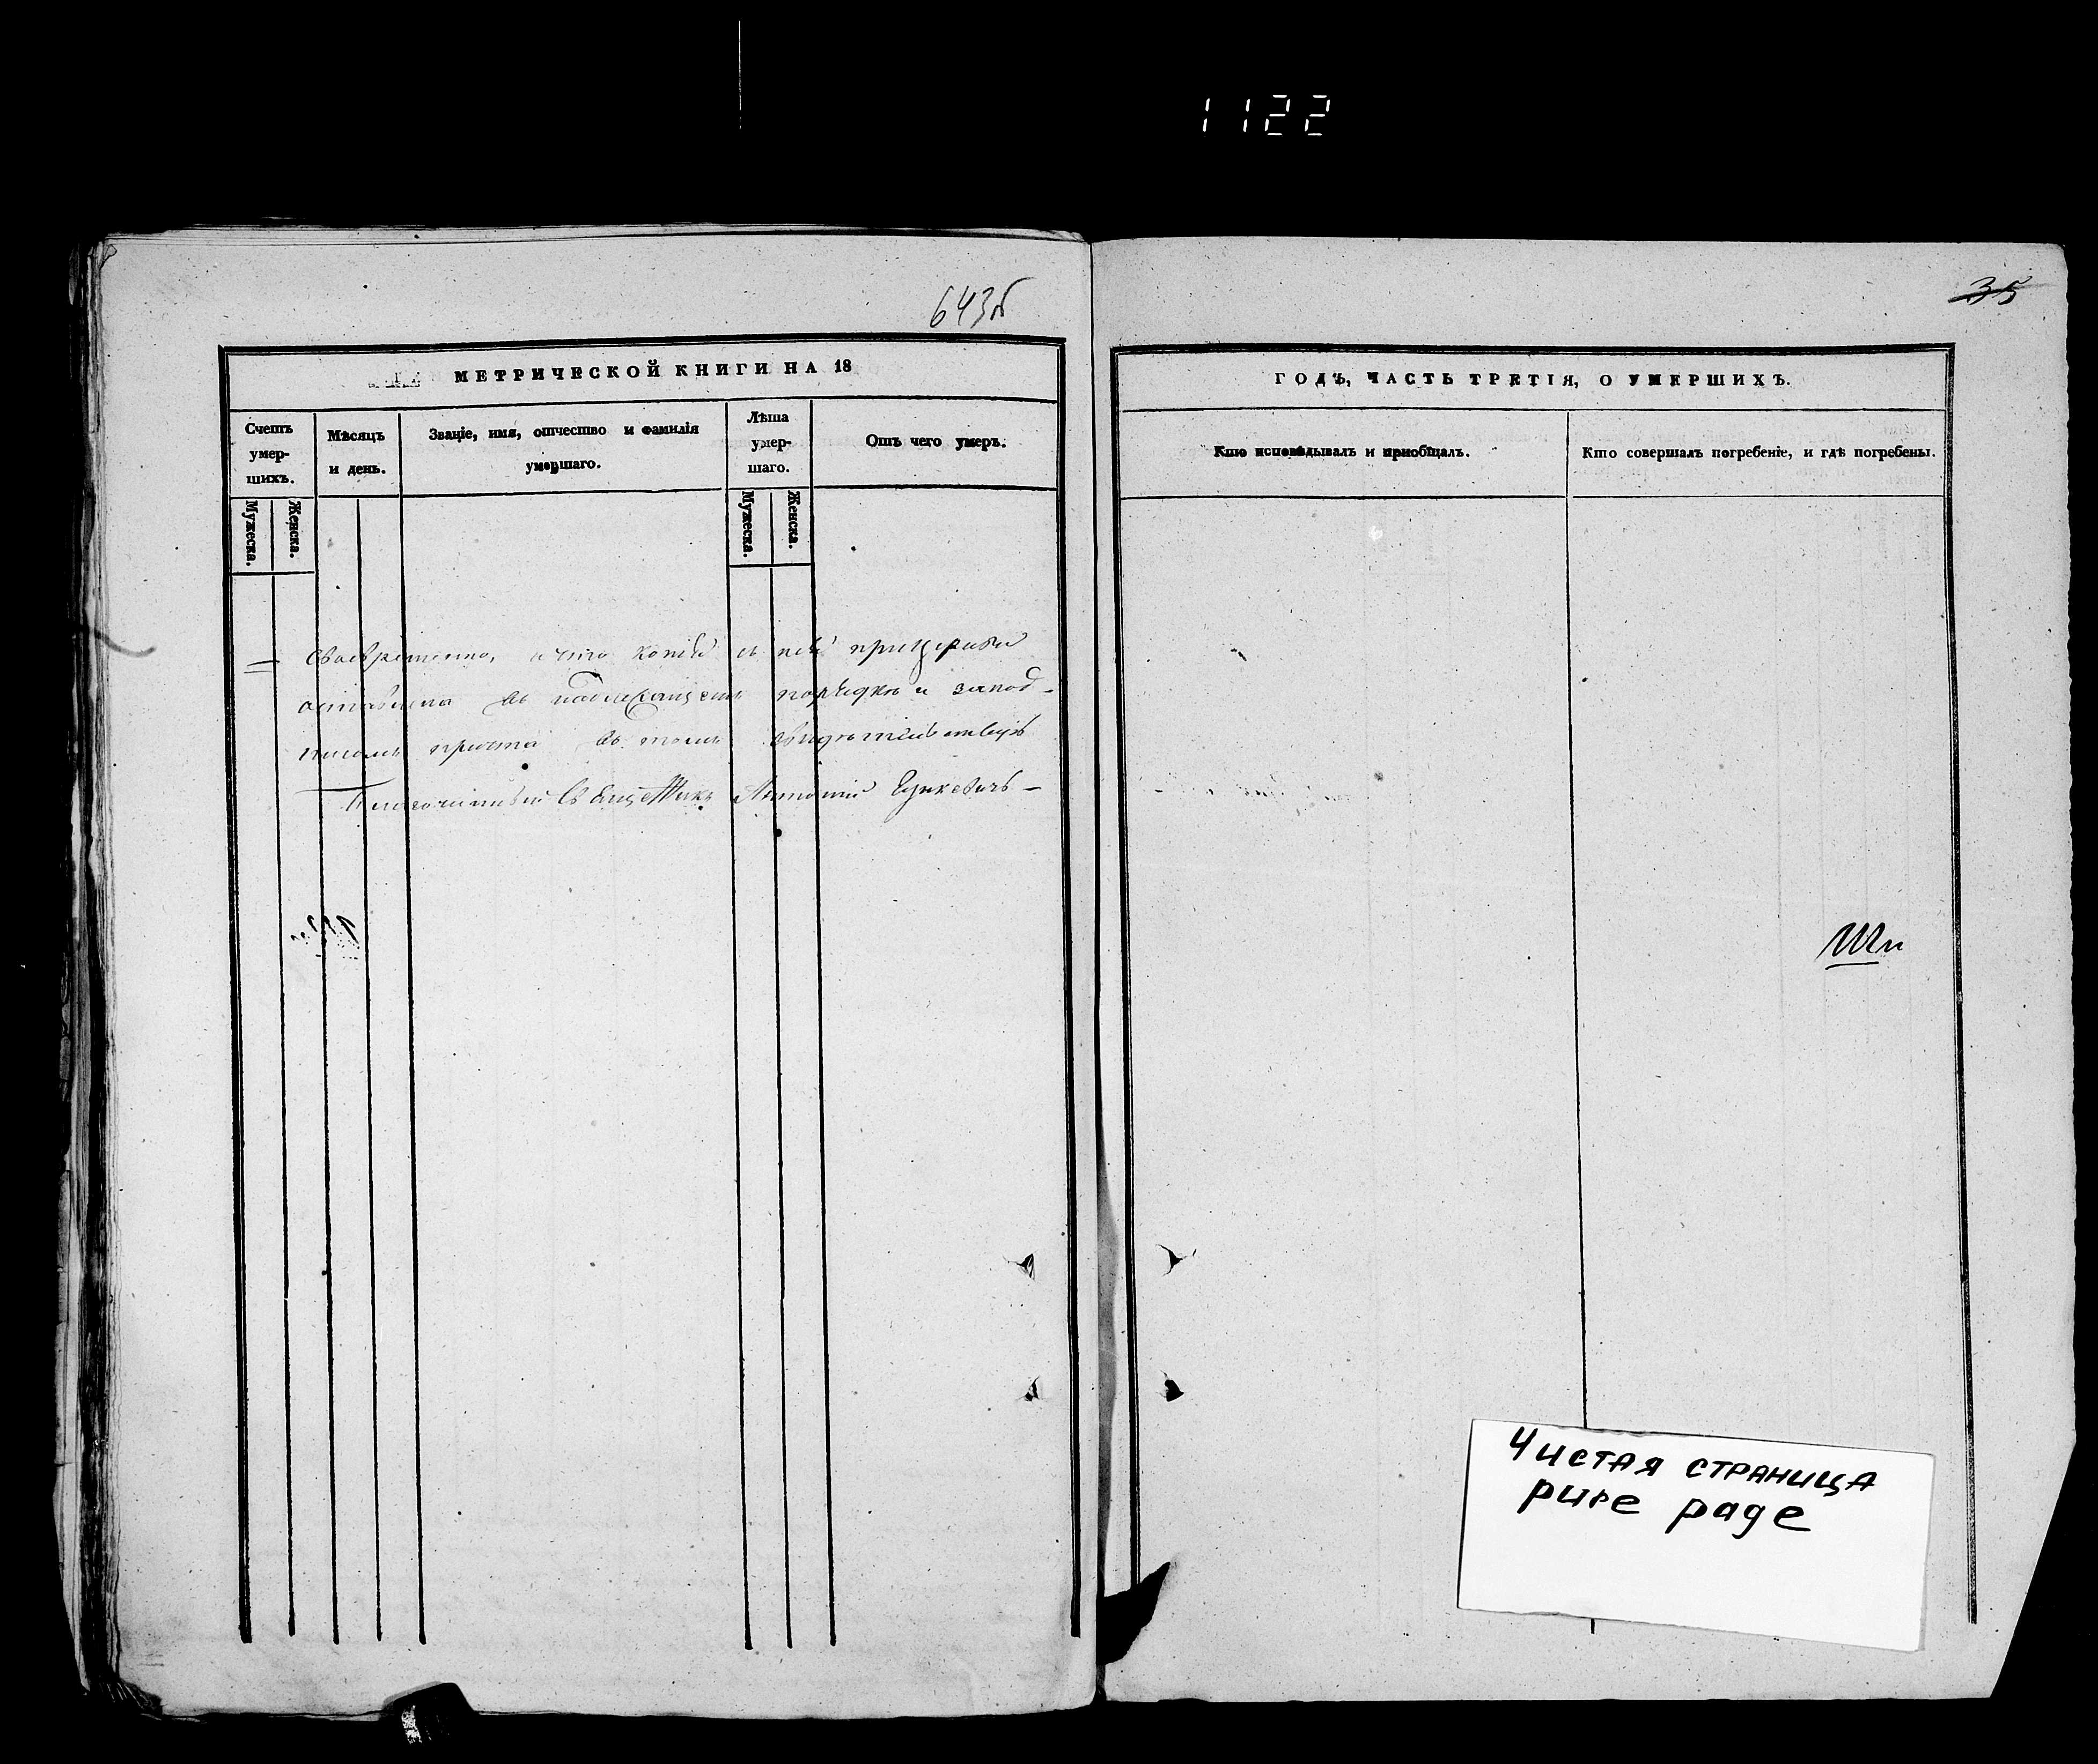 1122
643б
35
МЕТРИЧЕСКОЙ КНИГИ НА 18
ГОДЪ, ЧАСТЬ ТРЕТІЯ, О УМЕРШИХЪ.
Счетъ умер-шихъ.
Мѣсяцъ и день.
Званіе, имя, отчество и фамилія умершаго.
Лѣта умер-шаго.
Отъ чего умеръ.
Кто исповѣдывалъ и пріобщалъ.
Кто совершалъ погребеніе, и гдѣ погребены.
Мужеска.
Женска.
Мужеска.
Женска.
своевременно, и что копія съ ней при церкви
оставлена въ надлежащемъ порядкѣ и за под-
писомъ причта въ томъ
Антоній
Чистая страница
pure page